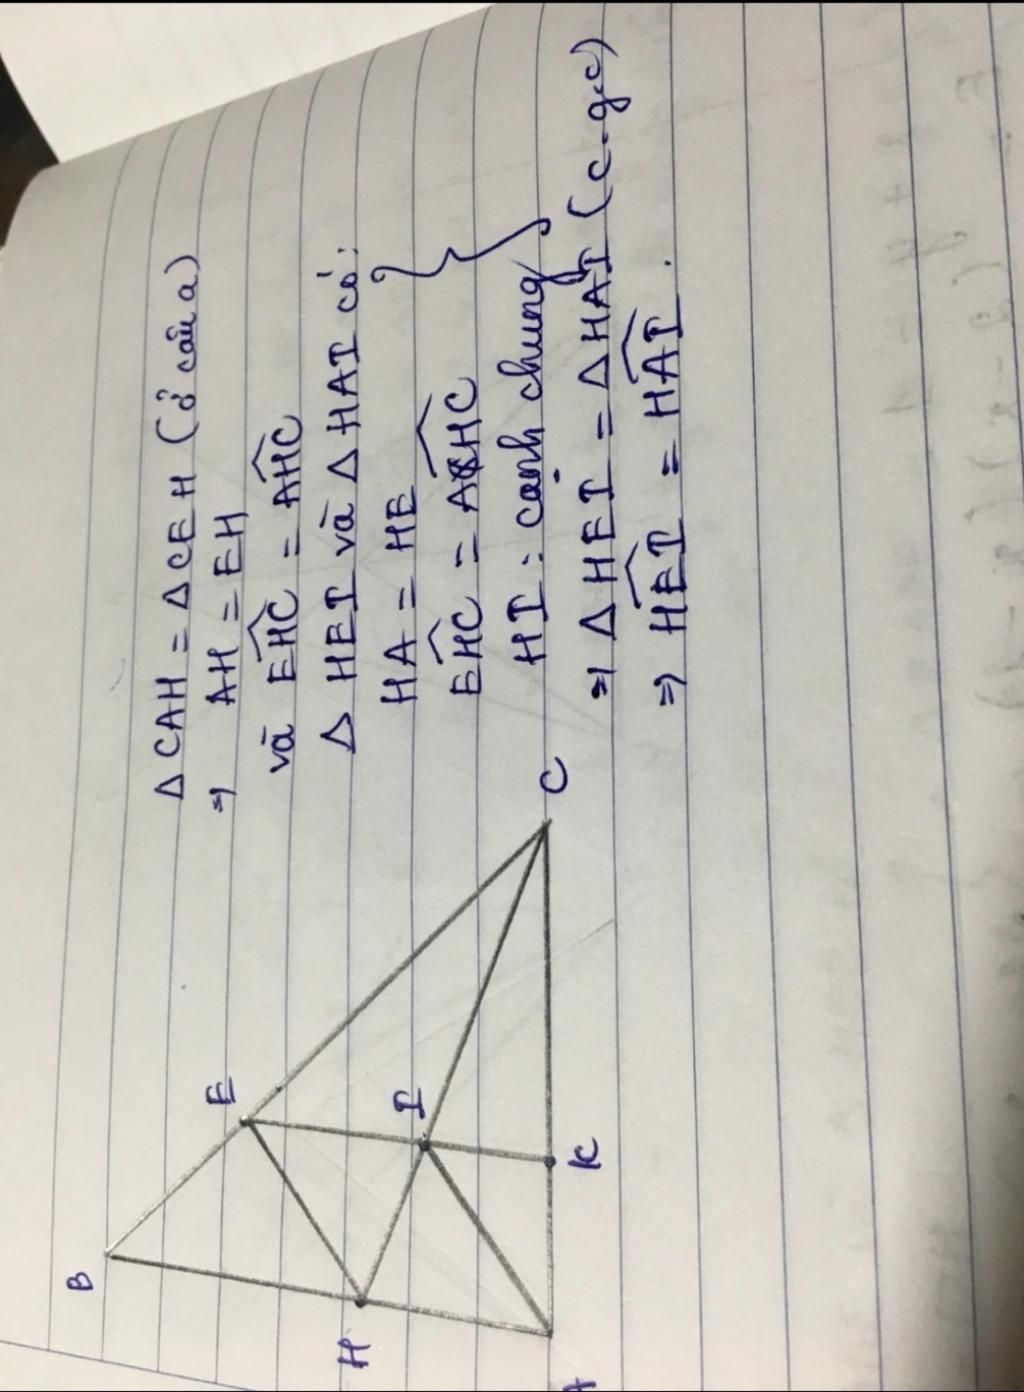 B
E
H
I
A
K
C
Δ CAH = Δ CEH (ở câu a)
⇒ AH = EH
và \widehat{EHC} = \widehat{AHC}
Δ HEI và Δ HAI có:
HA = HE
\widehat{EHC} = \widehat{AHC}
HI : cạnh chung
⇒ Δ HEI = Δ HAI (c.g.c)
⇒ \widehat{HEI} = \widehat{HAI}.